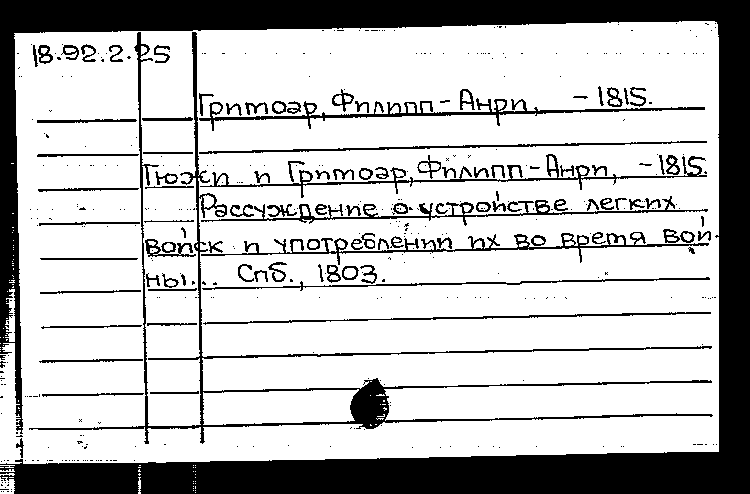 18.92.2.25
Гримоар, Филипп-Анри, - 1815.
Тюэжи и Гримоар, Филипп-Анри, - 1815.
Рассуждение о устройстве легких
войск и употреблении их во время вой-
ны... Спб., 1803.